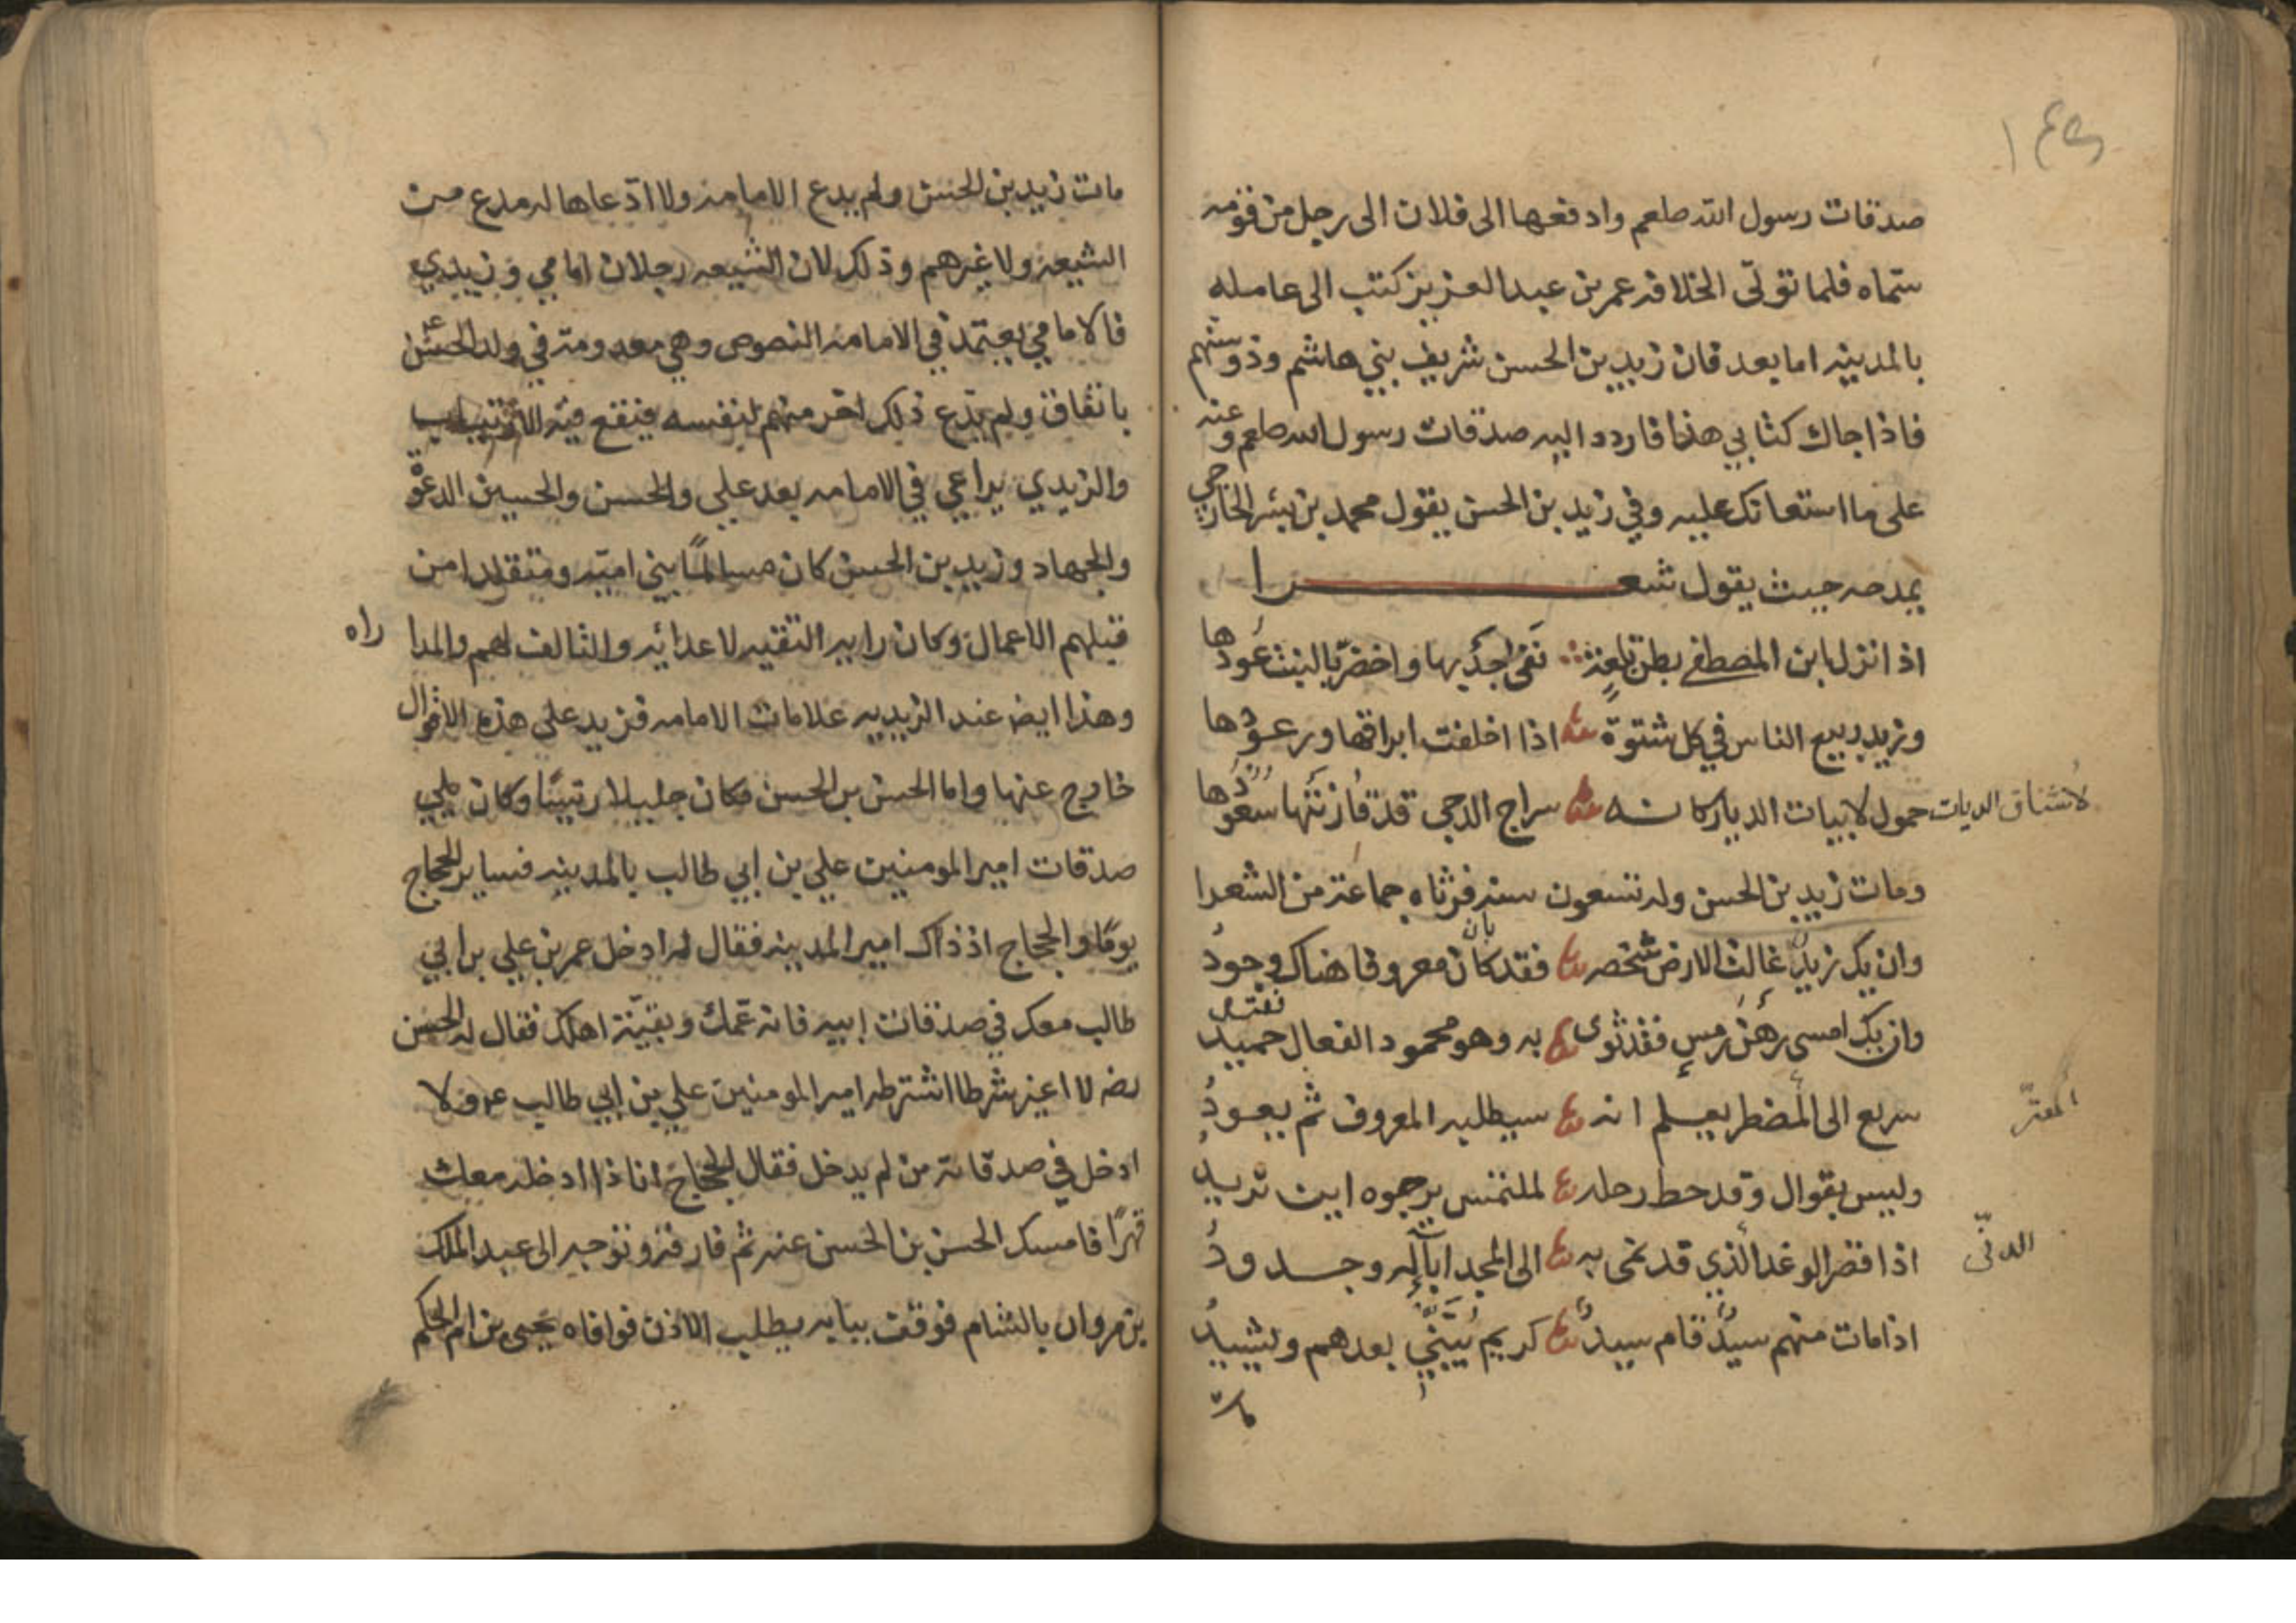 ١٤٥
صدقات رسول الله صلعم وادفعها الى فلان الى رجل من قومه
سماه فلما تولّى الخلافه عمر بن عبد العزيز كتب الى عامله
بالمدينه اما بعد فان زيد بن الحسن شريف بني هاشم وذو سنهم
فاذا جاك كتابي هذا فاردد اليه صدقات رسول الله صلعم وعنه
على ما استعانك عليه وفي زيد بن الحسن يقول محمد بن بشر الخارجي
يمدحه حيث يقول شعرا
اذا نزل ابن المصطفى بطن تلعة نفى جدبها واخضرّ بالنبت عودها
وزيد ربيع الناس في كل شتوة اذا اخلفت ابراقها ورعودها
حمول لابيات الديار كانه سراج الدجى قد قارنتها سعودها
لاشناق الديات
ومات زيد بن الحسن وله تسعون سنه فرثاه جماعة من الشعرا
وان يك زيدٌ غالت الارض شخصه فقد كان معروفا هناك وجودُ
بان
وان يك امسى رهن رمسٍ فقد ثوى به وهو محمود الفعال حميد
سريع الى المضطر يعلم انه سيطلبه المعروف ثم يعودُ
المعترّ
وليس بقوال وقد حط رحله لملتمس يرجوه اين تريد
اذا قصر الوغد الذي قد نمى به الى المجد اباءٌ له وجدودُ
الدنّى
اذا مات منهم سيدٌ قام سيدٌ كريم يبنّي بعدهم ويشيدُ
مات
مات زيد بن الحسن ولم يدع الامامه ولا ادّعاها له مدع من
الشيعه ولا غيرهم وذلك لان الشيعه رجلان امامي وزيدي
فالامامي يعتمد في الامامه النصوص وهي معدومة في ولد الحسن ع
باتفاق ولم يدّع ذلك احد منهم لنفسه فيقع فيه الارتياب
والزيدي يراعي في الامامه بعد علي والحسن والحسين الدعوة
والجهاد وزيد بن الحسن كان مسالمًا بني اميّه ومتقلدا من
قبلهم الاعمال وكان رايه التقيه لاعدائه والتالف لهم والمدا راه
وهذا ايضا عند الزيديه علامات الامامه فزيد على هذه الاقوال
خارج عنها واما الحسن بن الحسن فكان جليلا رئيسًا وكان يلي
صدقات امير المومنين علي بن ابي طالب بالمدينه فساير الحجاج
يومًا والحجاج اذ ذاك امير المدينه فقال له ادخل عمر بن علي بن ابي
طالب معك في صدقات ابيه فانه عمّك وبقيّة اهلك فقال له الحسن
رضه لا اغير شرطا اشترطه امير المومنين علي بن ابي طالب عم ولا
ادخل في صدقاته من لم يدخل فقال الحجاج انا ذا ادخله معك
قهرًا فامسك الحسن بن الحسن عنه ثم فارقه وتوجه الى عبد الملك
بن مروان بالشام فوقف ببابه يطلب الاذن فوافاه يحيى بن ام الحكم